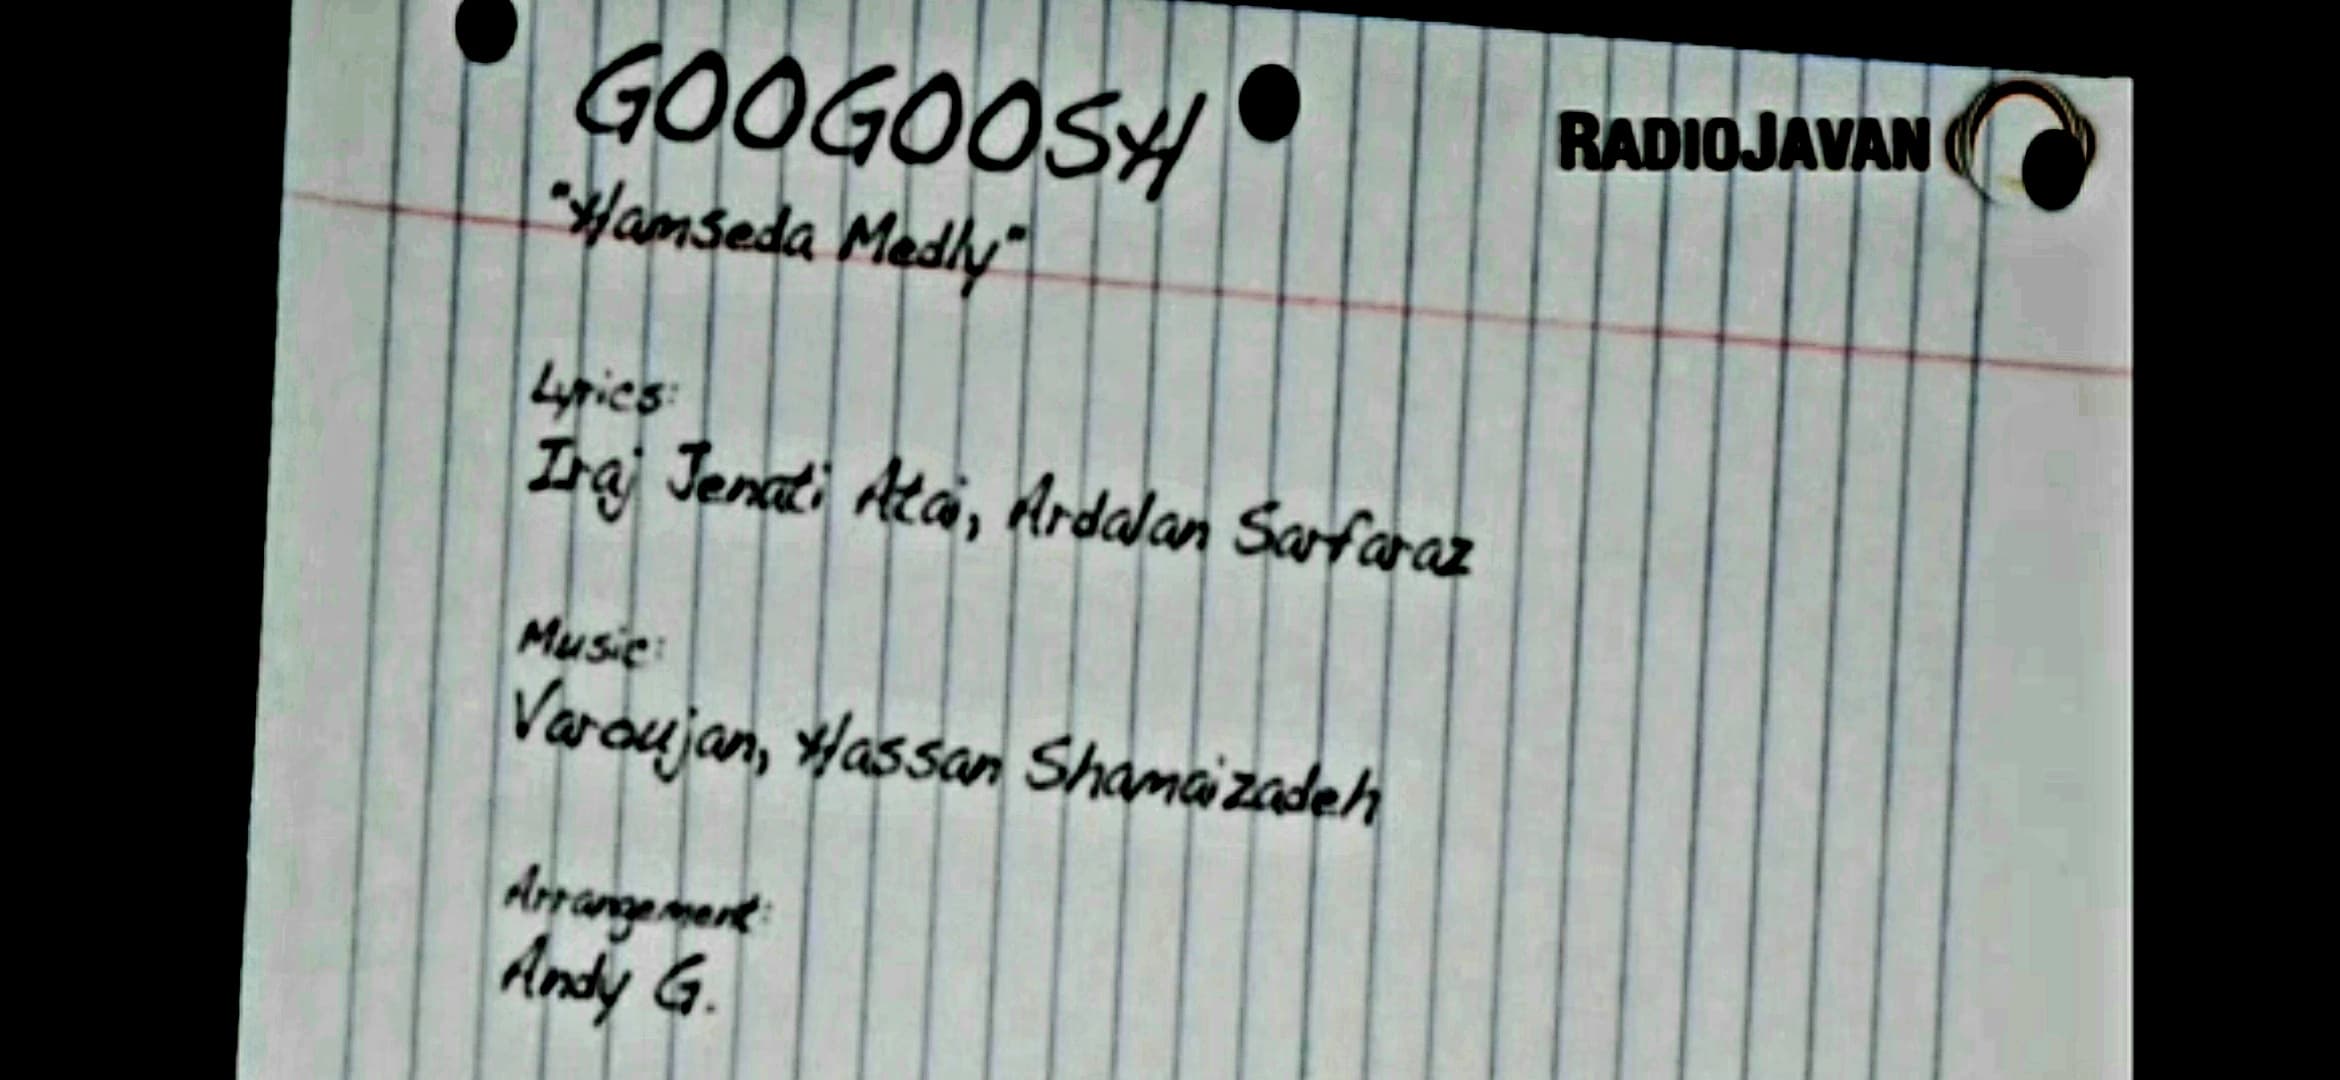 GOOGOOSH
RADIOJAVAN
"Hamseda Medly"
Lyrics:
Iraj Jenati Atai, Ardalan Sarfaraz
Music:
Varoujan, Hassan Shamaizadeh
Arrangement:
Andy G.